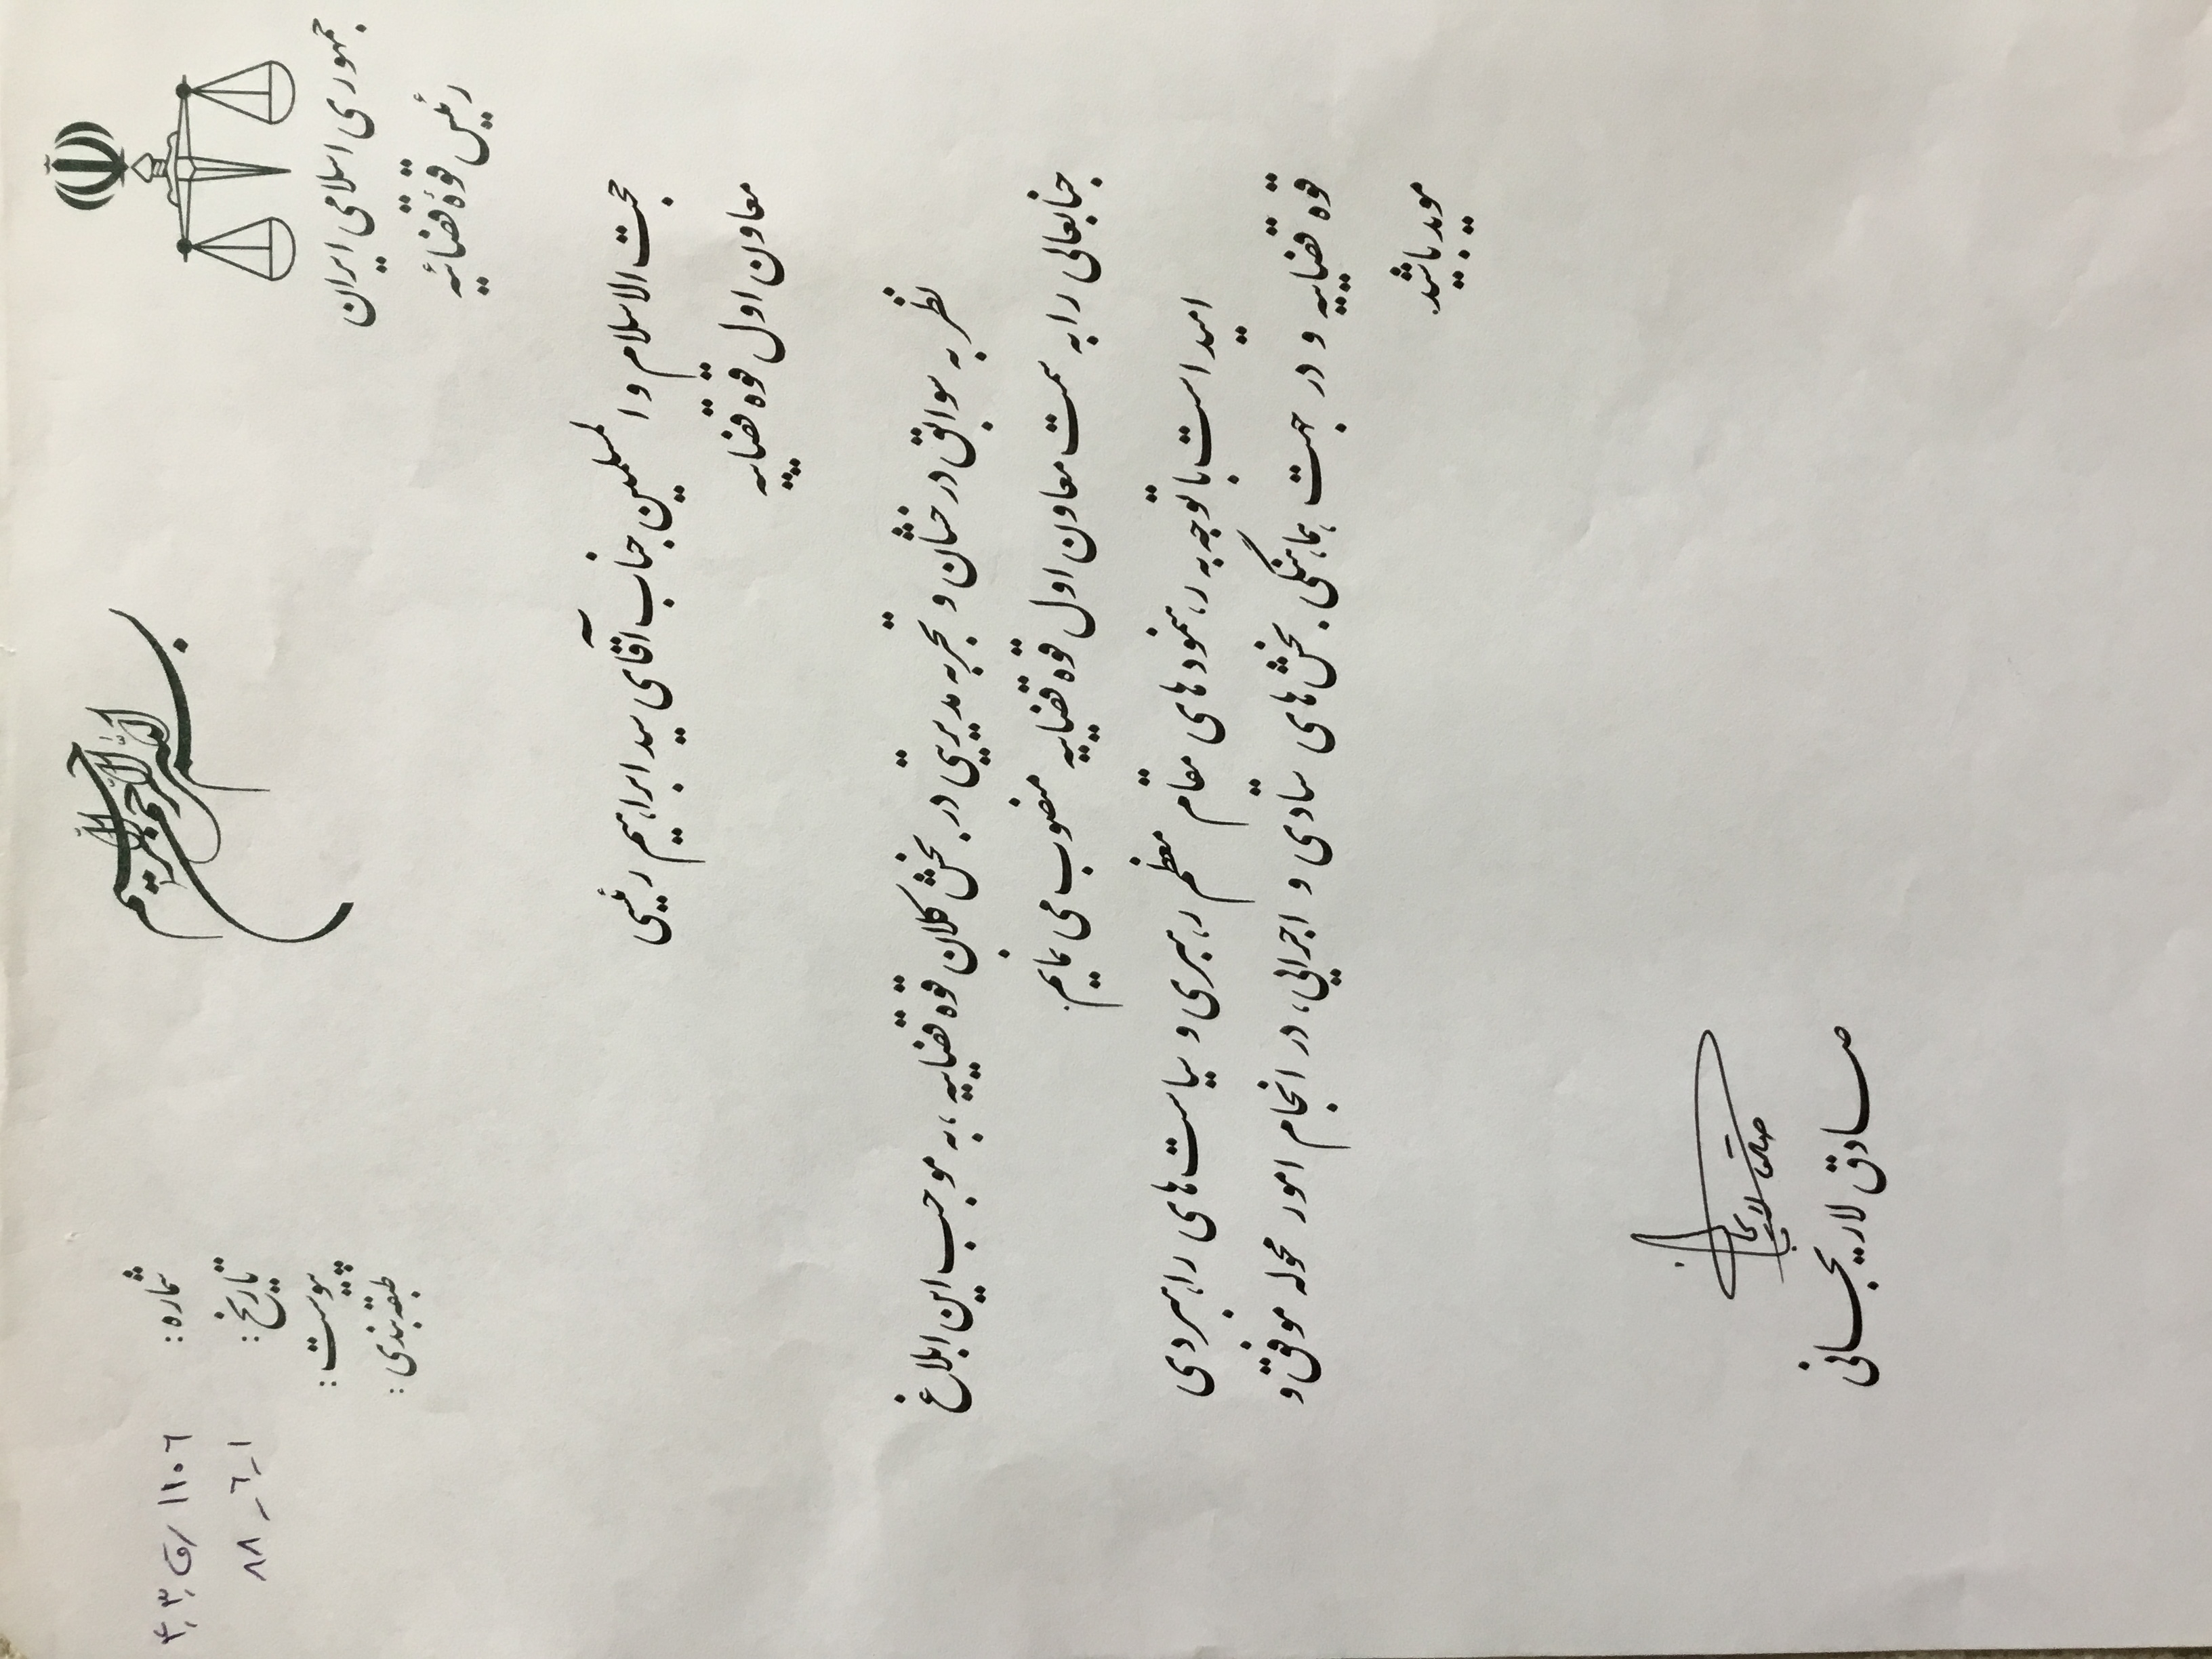 بسم الله الرحمن الرحیم
جمهوری اسلامی ایران
رئیس قوۀ قضائیه
شماره: ١١٠٦/ق
تاریخ: ١-٦-٨٨
پیوست:
طبقه‌بندی:
حجت الاسلام والمسلمین جناب آقای سید ابراهیم رئیسی
معاون اول قوه قضاییه
نظر به سوابق درخشان و تجربه مدیریتی در بخش کلان قوه قضاییه، به موجب این ابلاغ
جنابعالی را به سمت معاون اول قوه قضاییه منصوب می نمایم.
امید است با توجه به رهنمودهای مقام معظم رهبری و سیاست‌های راهبردی
قوه قضاییه و در جهت هماهنگی بخش‌های ستادی و اجرایی، در انجام امور محوله موفق و
موید باشید.
صادق لاریجانی